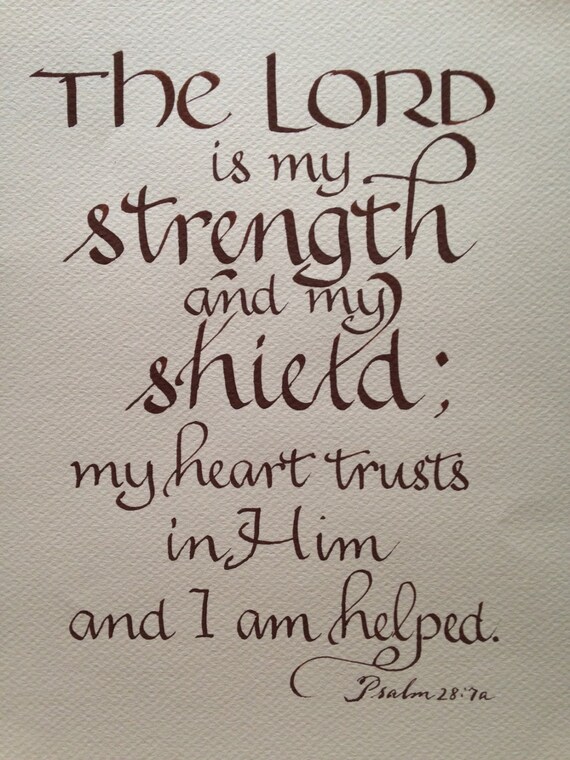 The LORD
is my
strength
and my
shield;
my heart trusts
in Him
and I am helped.
Psalm 28:7a